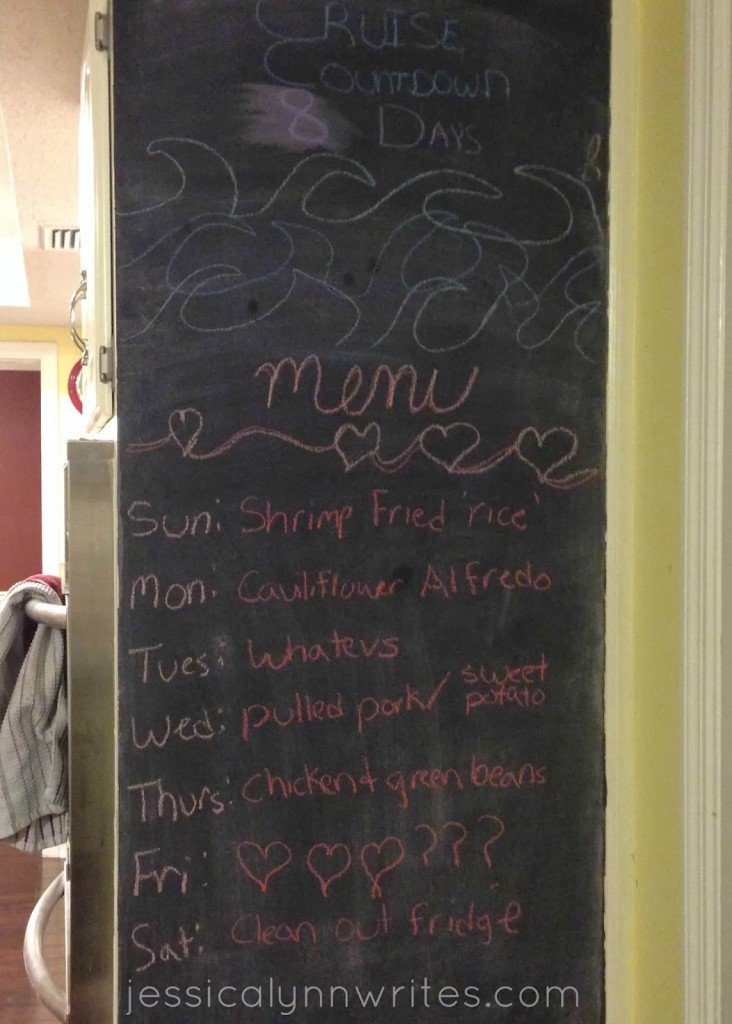 CRUISE
COUNTDOWN
8 DAYS
menu
Sun: Shrimp Fried 'rice'
Mon: Cauliflower Alfredo
Tues: Whatevs
Wed: pulled pork/ sweet potato
Thurs: Chicken + green beans
Fri: ♡ ♡♡ ???
Sat: Clean out fridge
jessicalynnwrites.com